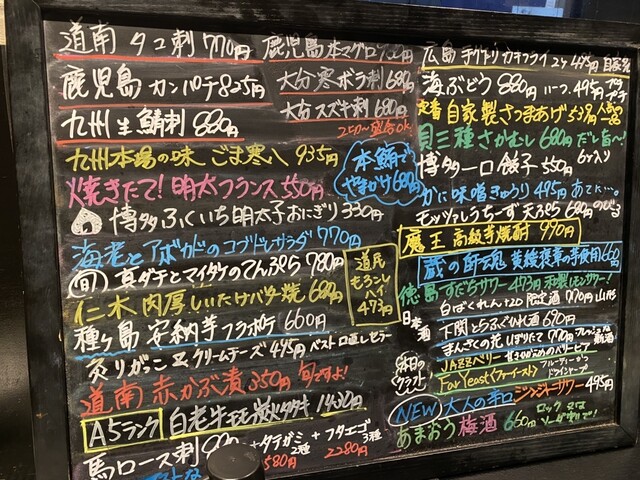 道南 タコ刺 770円
鹿児島本マグロ
鹿児島 カンパチ 825円
大分 寒ボラ刺 680円
九州 生鯖刺 880円
大分 スズキ刺 680円
九州本場の味 ごま寒八 935円
本鮪で
やまかけ 680円
焼きたて!明太フランス 550円
博多ふくいち明太子おにぎり 330円
海老とアボカドのコブドレサラダ 770円
旬 真ダチとマイタケのてんぷら 780円
道民
もろこし
ハイ
473円
仁木 肉厚しいたけバター焼 680円
種ヶ島 安納芋フライポテ 600円
炙りがっこ 又 クリームチーズ 495円
道南 赤かぶ漬 350円 旬ですよ!
A5ランク 白老牛モモ炭火タタキ 1430円
馬ロース刺
+タテガミ 2種
1580円
+フタエゴ 3種
2280円
広島 手グトリ カキフライ 2ケ 495円 自家製
海ぶどう 880円 ハーフ 495円
定番 自家製さつまあげ 539円 人気No.1
貝三種さかむし 680円 だし旨〜!
博多一口餃子 550円 6ケ入り
かに味噌きゅうり 495円 あたて…。
モッツァレラチーズ天ぷら 680円 のびる
魔王 高級芋焼酎 990円
蔵の師魂 黄綬褒章の芋使用 660円
徳島 すだちサワー 473円 和製レモンサワー!
日本酒
白ばくれん +20 限定酒 770円 山形
下関とらふぐひれ酒 690円
まんさくの花 しぼりたて 770円 フレッシュな新酒
本日のクラフト
JAZZベリー
Far Yeast(ファーイースト)
NEW 大人の辛口 ジンジャーサワー 495円
あまおう梅酒 660円 ロック 又は ソーダ割りで!